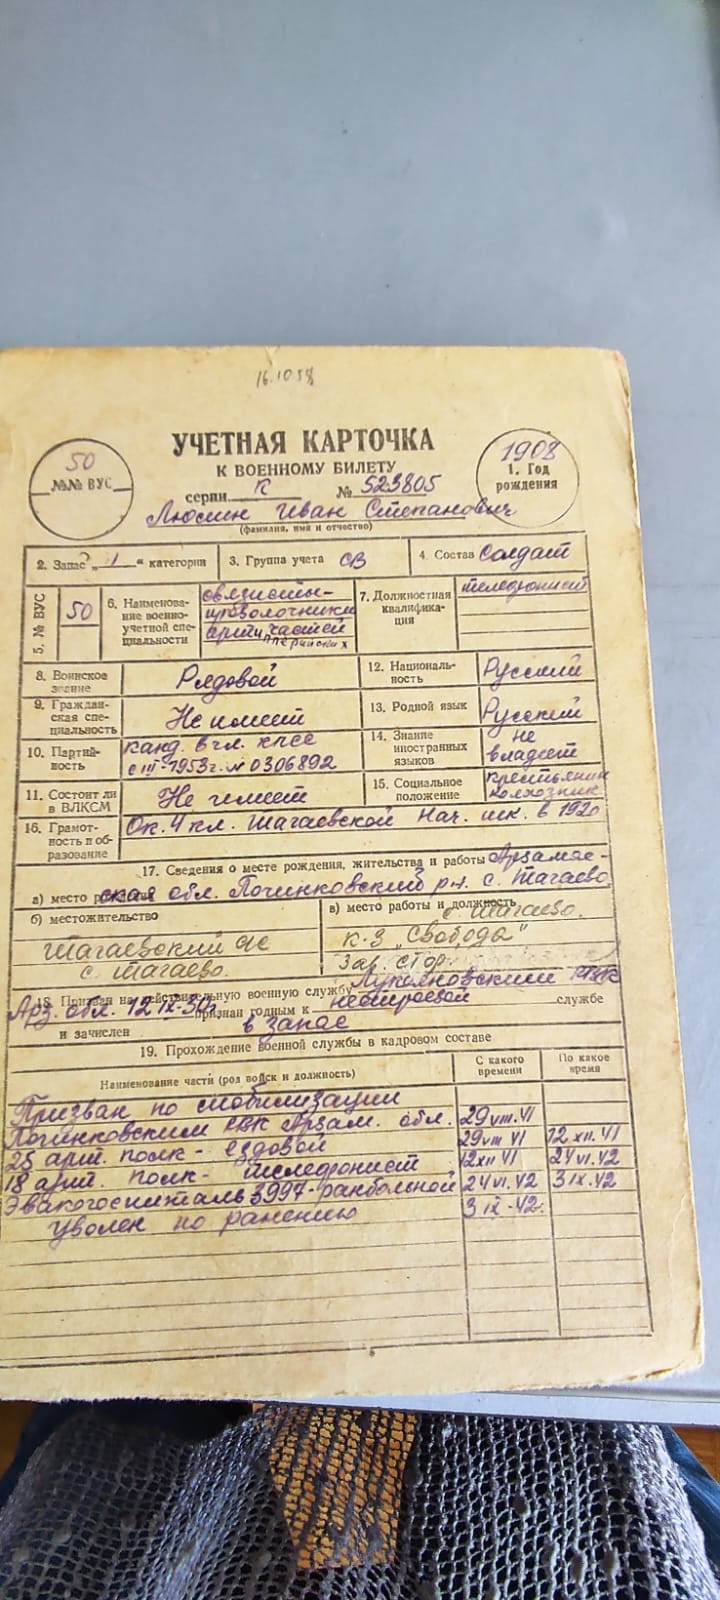 16.10.58
УЧЕТНАЯ КАРТОЧКА
К ВОЕННОМУ БИЛЕТУ
серии К № 523805
50
№№ ВУС
1908
1. Год рождения
Люсин Иван Степанович
(фамилия, имя и отчество)
2. Запас „1“ категории
3. Группа учета СВ
4. Состав Солдат
5. № ВУС 50
6. Наименова-
ние военно-
учетной спе-
циальности
связисты-
проволочники
арт. частей
7. Должностная
квалифика-
ция
телефонист
8. Воинское
звание
Рядовой
12. Националь-
ность
Русский
9. Граждан-
ская спе-
циальность
Не имеет
13. Родной язык
Русский
10. Партий-
ность
канд. в чл. кпсс
с III-1953г. № 0306892
14. Знание
иностранных
языков
не
владеет
11. Состоит ли
в ВЛКСМ
Не имеет
15. Социальное
положение
крестьянин
колхозник
16. Грамот-
ность и об-
разование
Ок. 4 кл. Шагаевской Нач. шк. в 1920
17. Сведения о месте рождения, жительства и работы Арзамас-
а) место ская обл. Починковский р-н. с. Шагаево
б) местожительство
Шагаевский с/с
с. Шагаево.
в) место работы и должность
с. Шагаево.
к-з „Свобода"
Зав. стор.
18. Призван на действительную военную службу Лукояновским РВК
Арз. обл. 12 IX-30г признан годным к нестроевой службе
и зачислен в запас
19. Прохождение военной службы в кадровом составе
Наименование части (род войск и должность)
С какого
времени
По какое
время
Призван по мобилизации
Починковским РВК Арзам. обл. 29 VIII. 41
25 арт. полк - ездовой 29 VIII 41 12 XII. 41
18 арт. полк - телефонист 12 XII 41 24 VI. 42
Эвакогоспиталь 3997 - ранбольной 24 VI. 42 3 IX. 42
уволен по ранению 3 IX-42.